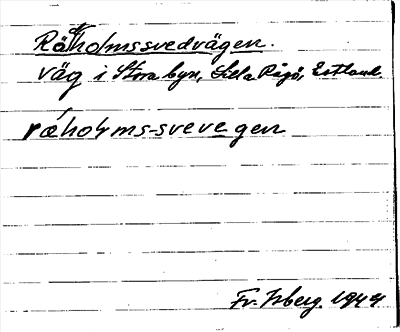 Råholmssvedvägen.
väg i Stora byn, Lilla Rågö, Estland.
ráholms-svevegen
Fr. Isberg. 1944